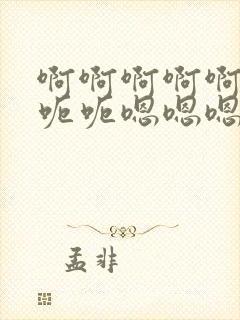 啊啊啊啊啊
呃呃嗯嗯嗯
孟非